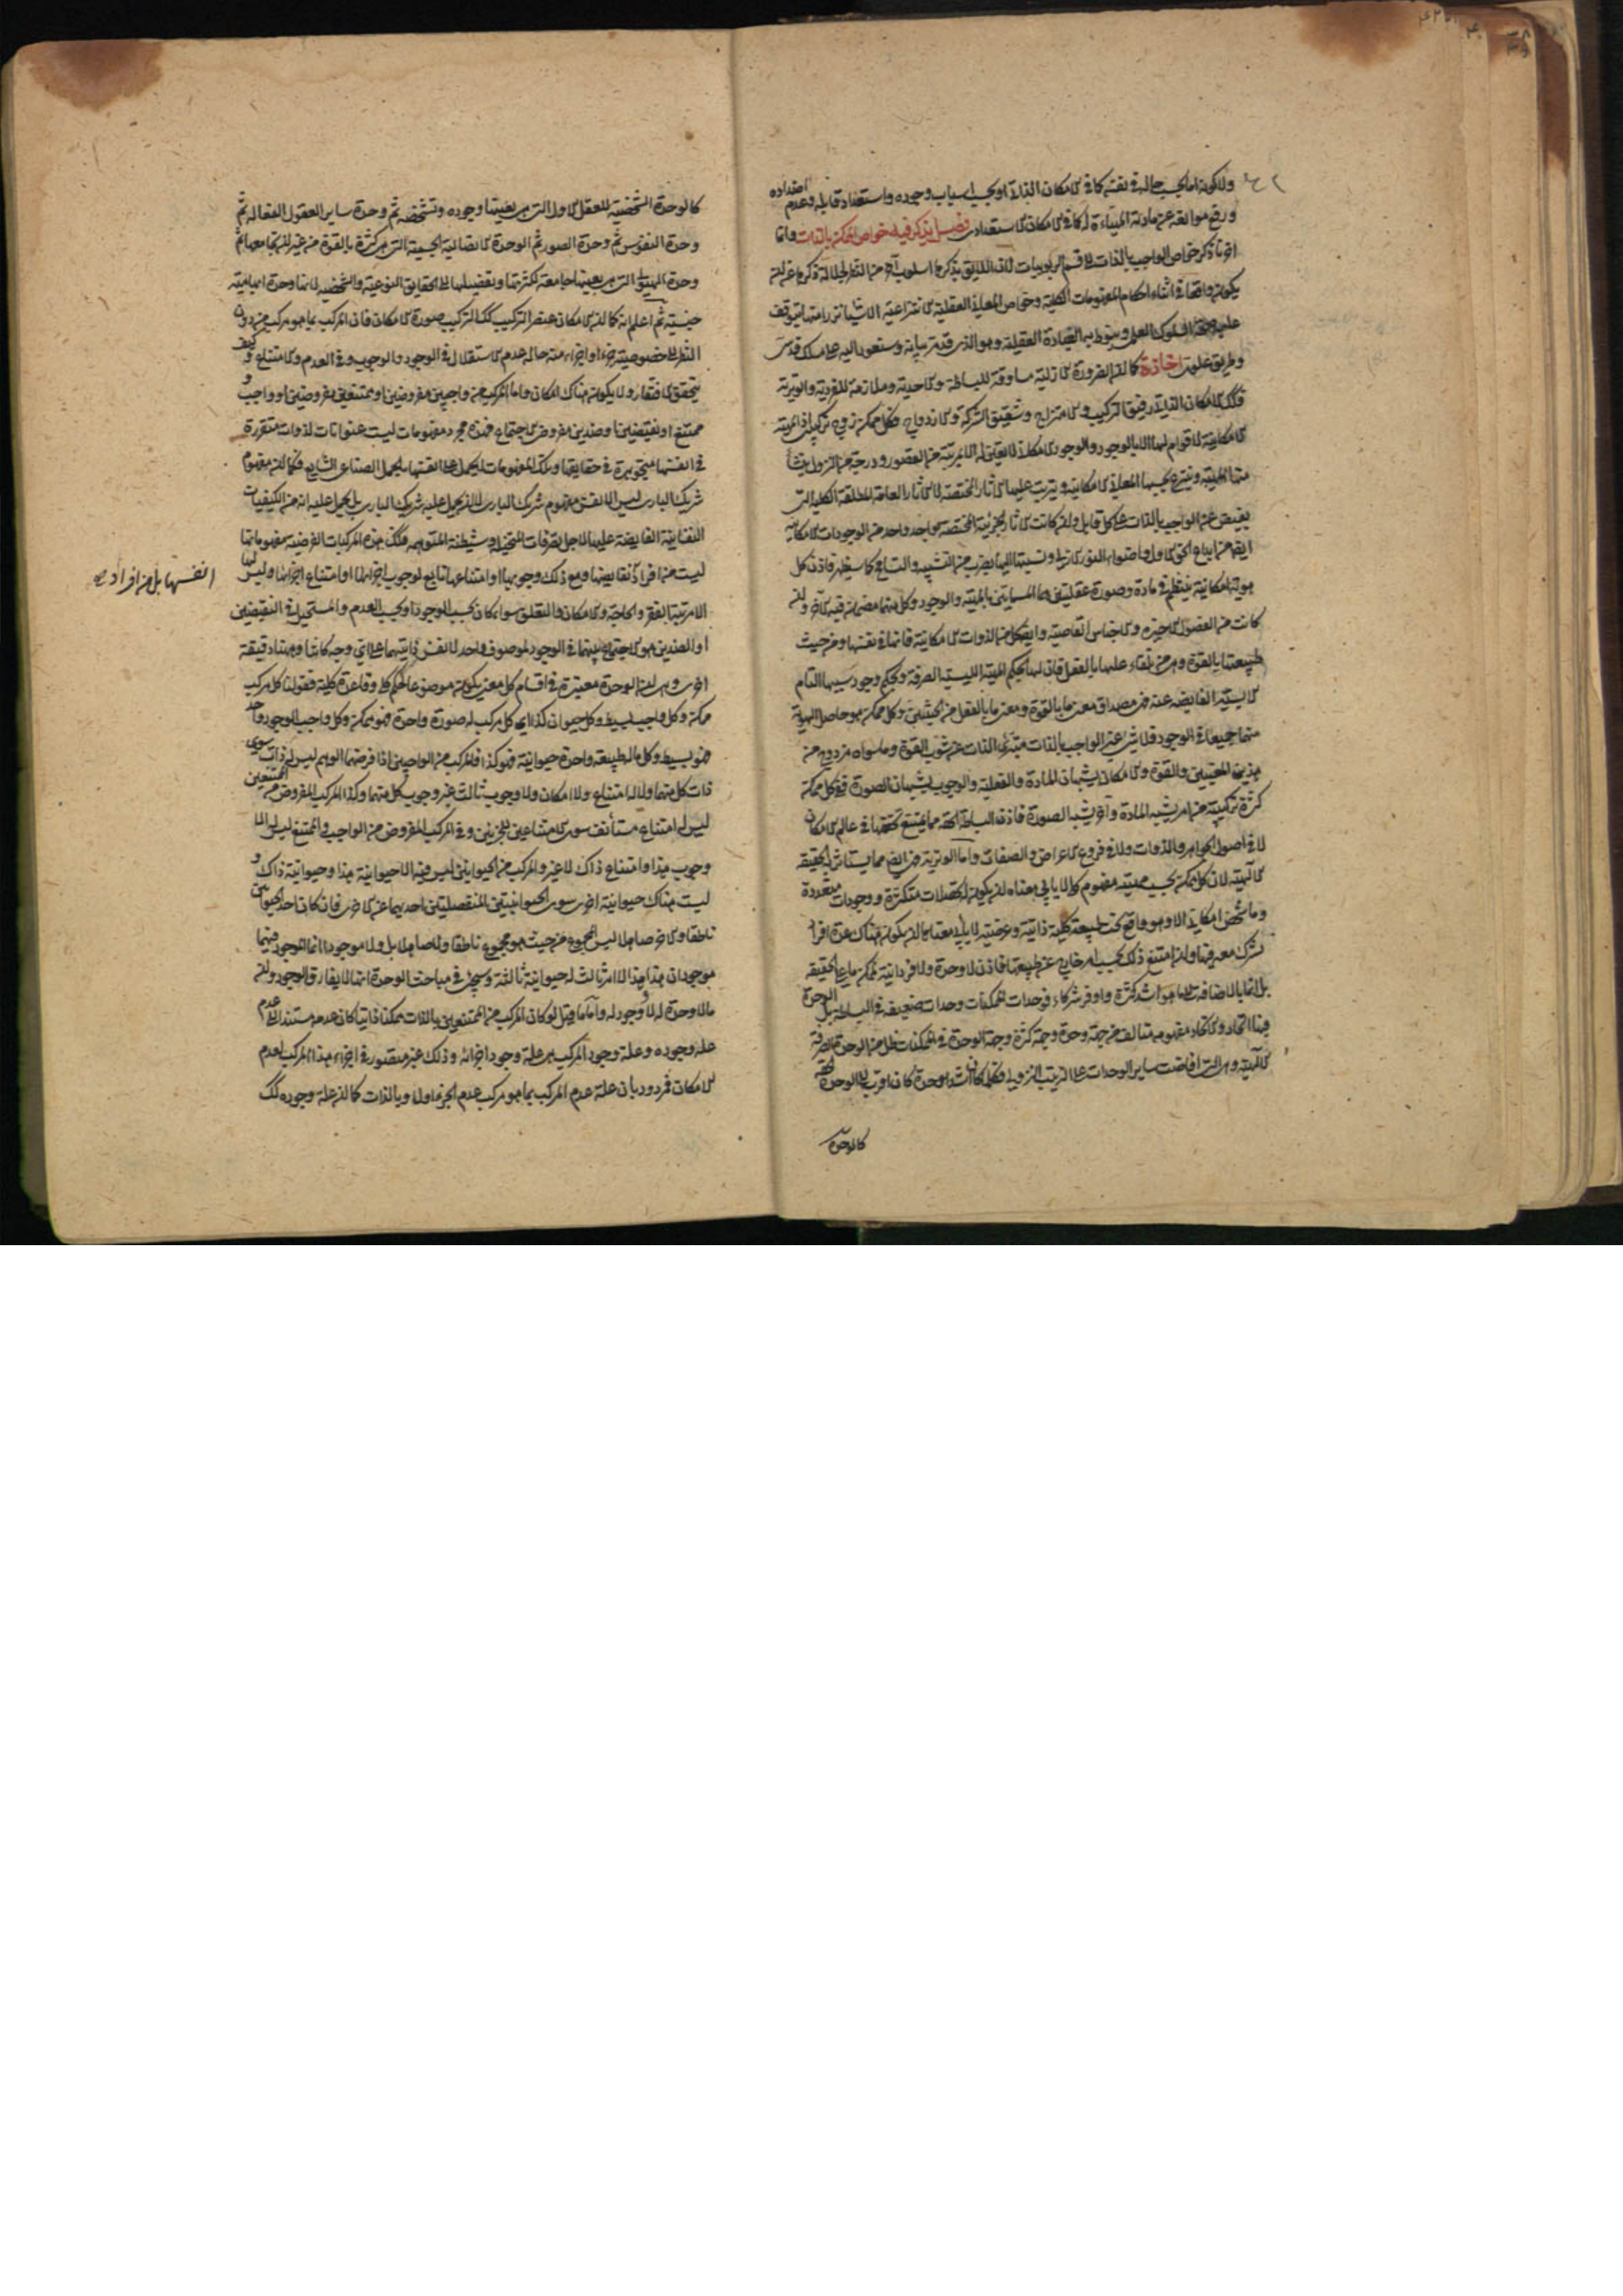 ولا لكونه اما بحسب حاله في نفسه كما في الامكان الذاتي او بحسب اسباب وجوده واستعداد قابله وعدم اضداده
ورفع موانعه عن مادته المهيأة له كما في الامكان الاستعدادي فصل يذكر فيه خواص الممكن بالذات وانما
اخرنا ذكر خواص الواجب بالذات الى قسم الربوبيات لان اللايق بذكره اسلوب آخر من النظر لجلالة ذكره عن ان
يكون واقعا في اثناء احكام المفهومات الكلية وخواص المعاني العقلية الانتزاعية الا شيئا نزرا منها يتوقف
عليه صحة السلوك العلمي وينوط به العبادة العقلية وهو الذي قد مر بيانه وسنعود اليه على مسلك قدسي
وطريق علوي اخاذة كما ان الضرورة الازلية مساوقة للبساطة والاحدية وملازمة للفردية والوترية
فكذلك الامكان الذاتي رفيق التركيب والامتزاج وشقيق الشركة والازدواج فكل ممكن زوج تركيبي اذ المهية
الامكانية لا قوام لها الا بالوجود والوجود الامكاني لا تعين له الا بمرتبة من القصور ودرجة من النزول ينشأ
منها المهية وينتزع بحسبها المعاني الامكانية ويترتب عليها الآثار المختصة لا الآثار العامة المطلقة الكلية التي
يفيض عن الواجب بالذات على كل قابل وان كانت الآثار الجزئية المختصة بواحد واحد من الوجودات الامكانية
ايضا من ابداع الحق الاول واضواء النور الازلي ونسبتها اليها بضرب من التشبيه والتسامح كما سيظهر فاذن كل
هوية امكانية ينتظم من مادة وصورة عقليتين هما المسميتين بالمهية والوجود وكل منهما مضمن فيه الآخر وان
كانت من الفصول الاخيرة والاجناس القاصية وايضا كل من الذوات الامكانية فانها في نفسها ومن حيث
طبيعتها بالقوة وهي من تلقاء علتها بالفعل فان لها بحكم المهية الليسية الصرفة وبحكم وجود سببها التام
الايسية الفايضة عنه فهي مصداق معنى ما بالقوة ومعنى ما بالفعل من الحيثيتين وكل ممكن هو حاصل الهوية
منهما جميعا في الوجود فلا شيء غير الواجب بالذات متبري الذات عن شوب القوة وما سواه مزدوج من
هذين المعنيين والقوة والامكان يشبهان المادة والفعلية والوجوب يشبهان الصورة ففي كل ممكن
كثرة تركيبية من امر يشبه المادة وآخر يشبه الصورة فاذن البساطة الحقة مما يمتنع تحققها في عالم الامكان
لا في اصول الجواهر والذوات ولا في فروع الاعراض والصفات واما الوترية فهي ايضا مما يستاثر بالحقيقة
الالهية لان كل ممكن بحسب مهيته مفهوم كلي لا يابى معناه ان يكون له تحصلات متكثرة ووجودات متعددة
وما شخص امكاني الا وهو واقع تحت طبيعة كلية ذاتية او عرضية لا يابى معناها ان يكون هناك عدة افراد
تشترك معه فيها وان امتنع ذلك بحسب امر خارج عن طبيعتها فاذن لا وحدة ولا فردانية لممكن ما على الحقيقة
بل انما بالاضافة الى ما هو اشد كثرة واوفر شركاء فوحدات الممكنات وحدات ضعيفة في البساطة بل الوحدة
فيها اتحاد والاتحاد مفهومه متالف من جهة وحدة وجهة كثرة وجهة الوحدة في الممكنات ظل من الوحدة الصرفة
الالهية وهي التي افاضت ساير الوحدات على الترتيب النزولي فكلما كان اشد وحدة كان اقرب الى الوحدة الحقة
كالوحدة
كالوحدة الشخصية للعقل الاول التي هي بعينها وجوده وتشخصه ثم وحدة ساير العقول الفعالة ثم
وحدة النفوس ثم وحدة الصور ثم الوحدة الاتصالية الجسمية التي هي كثرة بالقوة من غير ان يجامعها ثم
وحدة الهيولى التي هي بعينها جامعة لكثرتها وتفصيلها الى الحقايق النوعية والشخصية لانها وحدة ابهامية
جنسية ثم اعلم انه كما ان الامكان عنصر التركيب كذلك التركيب صورة الامكان فان المركب بما هو مركب من دون
النظر الى خصوصية جزء او اجزاء منه حاله عدم الاستقلال في الوجود والوجوب وفي العدم والامتناع وكيف
يتحقق الافتقار ولا يكون هناك امكان واما المركب من واجبين مفروضين او ممتنعين مفروضين او واجب و
ممتنع او نقيضين او ضدين مفروض الاجتماع فهذه مجرد مفهومات ليست عنوانات لذوات متقررة
في انفسها متجوهرة في حقايقها وتلك المفهومات لا يحمل على انفسها بالحمل الصناعي الشايع فكما ان مفهوم
شريك الباري ليس الا نفس مفهوم شريك الباري لا ان يحمل عليه شريك الباري بل يحمل عليه انه من الكيفيات
النفسانية الفايضة عليها لاجل تصرفات المتخيلة وشيطنة المتوهمة فكذلك هذه المركبات الفرضية مفهوماتها
ليست من افراد نقايضها ومع ذلك وجوبها او امتناعها تابع لوجوب اجزائها او امتناع اجزائها وليس لها
انفسها بل من افراد صح
الا مرتبة الفقر والحاجة والامكان والتعلق سواء كان بحسب الوجود او بحسب العدم والمستحيل في النقيضين
او الضدين هو الاجتماع بينهما في الوجود لموصوف واحد لا نفس ذاتيهما على اي وجه كانتا وههنا دقيقة
اخرى وهي ان الوحدة معتبرة في اقسام كل معنى يكون موضوعا لحكم كلي وقاعدة كلية فقولنا كل مركب
ممكن وكل واجب بسيط وكل حيوان كذا اي كل مركب له صورة واحدة فهو ممكن وكل واجب الوجود واحد
فهو بسيط وكل ما له طبيعة واحدة حيوانية فهو كذا فالمركب من الواجبين اذا فرضهما الوهم ليس له ذات سوى
ذات كل منهما ولا له امتناع ولا امكان ولا وجوب ثالث غير وجوب كل منهما وكذا المركب المفروض من الممتنعين
ليس له امتناع مستأنف سوى امتناعي الجزئين وفي المركب المفروض من الواجب والممتنع ليس الا
وجوب هذا وامتناع ذاك لا غير والمركب من الحيوانين ليس فيه الا حيوانية هذا وحيوانية ذاك و
ليست هناك حيوانية اخرى سوى الحيوانيتين المنفصلتين احديهما عن الاخرى فان كان احد الحيوانين
ناطقا والآخر صاهلا ليس المجموع من حيث هو مجموع ناطقا ولا صاهلا بل ولا موجودا انما الموجود فيهما
موجودان هذا وهذا لا امر ثالث له حيوانية ثالثة وسيجيء في مباحث الوحدة انها لا يفارق الوجود وان
ما لا وحدة له لا وجود له واما ما قيل لو كان المركب من الممتنعين بالذات ممكنا ذاتيا كان عدمه مستندا الى عدم
علة وجوده وعلة وجود المركب هي علة وجود اجزائه وذلك غير متصور في اجزاء هذا المركب لعدم
الامكان فمردود بان علة عدم المركب بما هو مركب عدم الجزء اولا وبالذات كما ان علة وجوده كذلك